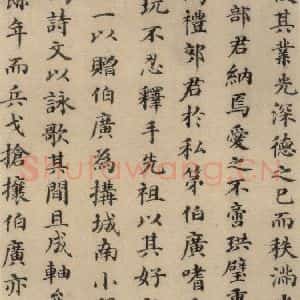 其業光深德之已而秩滿
部君納焉愛之不啻珙璧重
禮部君於私第伯廣嗜
玩不忍釋手先祖以其好
一以贈伯廣為搆城南小
詩文以詠歌其間且成軸
年而兵戈搶攘伯廣亦
Shufawang.CN